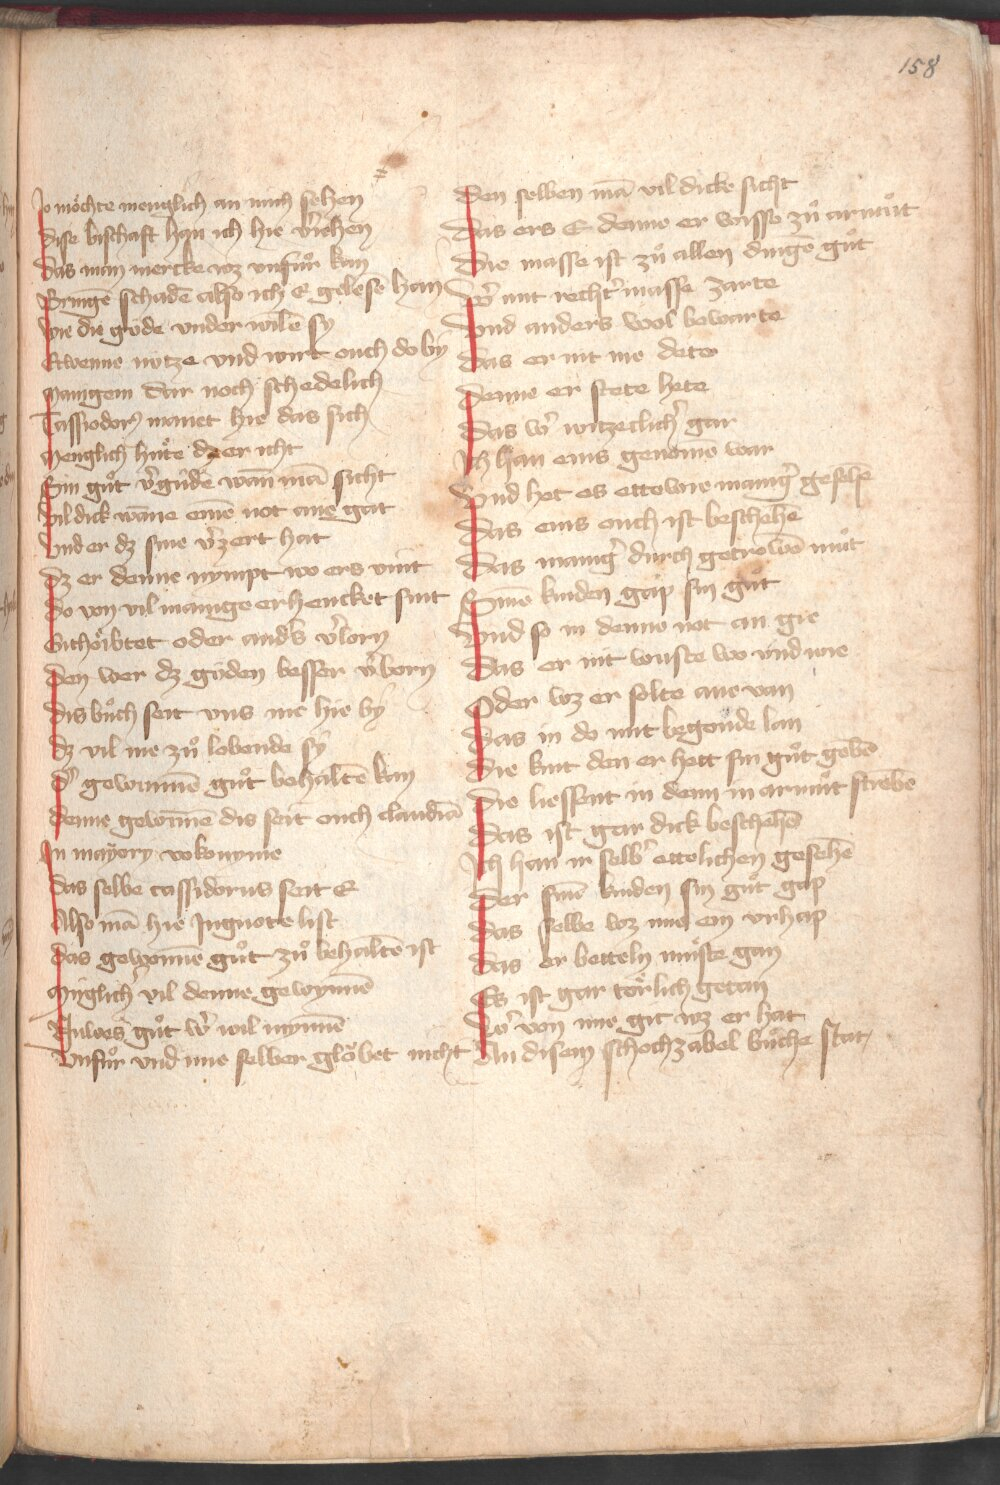 158
Jo möchte menglich an mich sehen
dise bischaft han ich hie v̓iehen
das man mercke wz vnfůr kan
Bringē schadē also ich E gelesē han
wie du güde vnder wilē sy
Etwenne nütze vnd wirt ouch do by
Manigem dar noch schedelich
Cassiodorꝯ manet hie das sich
Menglich hüte dz er icht
Sin gůt v̓güde wan̄ mā sicht
vil dick wāne eine not ane gat
vnd er dz sine v̓zert hat
dz er denne nympt wo ers vint
do von vil manige erhencket sint
Enthöibtet oder and̓s v̓lorn
den wer dz güden besser v̓born
dis bůch seit vns me hie by
dz vil me zů lobende sy
d̓ gewunnē gůt behaltē kan
denne gewinnē dis seit ouch claudiā
In mayory vokonyme
das selbe cassidorus seit E
Also mā hie Inguote list
das gewonnē gůt zů behaltē ist
Müglich̓ vil denne gewynnē
Nuwes gůt w̓ wil mynnē
vnfůr vnd me selber glöbet nicht
den selben mā vil dicke sicht
das ers E denne er wisse zů armůt
die masse ist zů allen dingē gůt
w̓ mit recht̓ masse zarte
vnd anders wol bewarte
das er nit me dete
denne er stete hete
das w̓ witzeclich̓ gar
Ich han eins genomē war
vnd het es ettewie manig̓ geseh̄e
das eins ouch ist beschehē
das manig̓ durch getrowē můt
Sinē kinden gap sin gůt
vnd so in denne not an gie
das er nit wuste wo vnd wie
Oder wz er solte ane van
das in do mit begonde lan
die kint den er hett sin gůt gebē
die liessent in denn in armůt strebē
das ist gar dick beschehē
Ich han ir selb̓ ettelichen gesehē
der sinē kinden sin gůt gap
das selbe wz ime ein vrhap
das er betteln müste gan
Es ist gar törlich getan
w̓ von ime git wz er hat
An disem schochzabel bůche stat